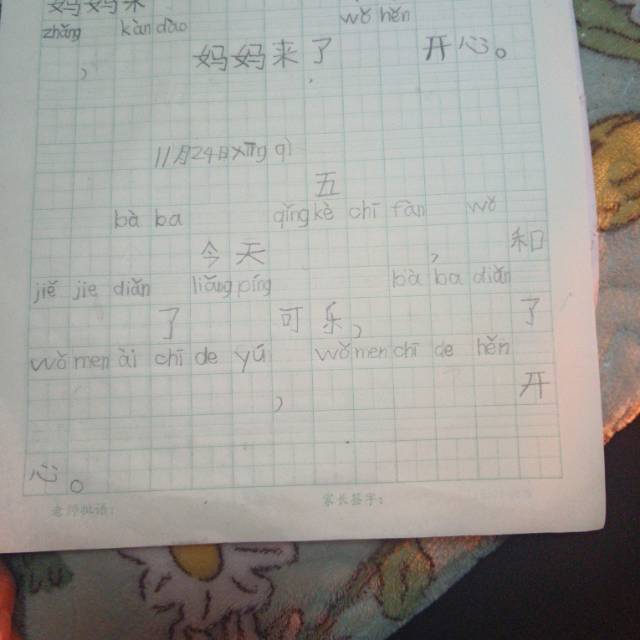 妈妈来 wǒ hěn
zhāng kàn dào
, 妈妈来了 开心。
11月24日xīng qī
五
bà ba qǐng kè chī fàn wǒ
今天 , 和
jiě jie diǎn liǎng píng bà ba diǎn
了 可乐, 了
wǒ men ài chī de yú wǒ men chī de hěn
, 开
心。
老师的话: 家长签字: